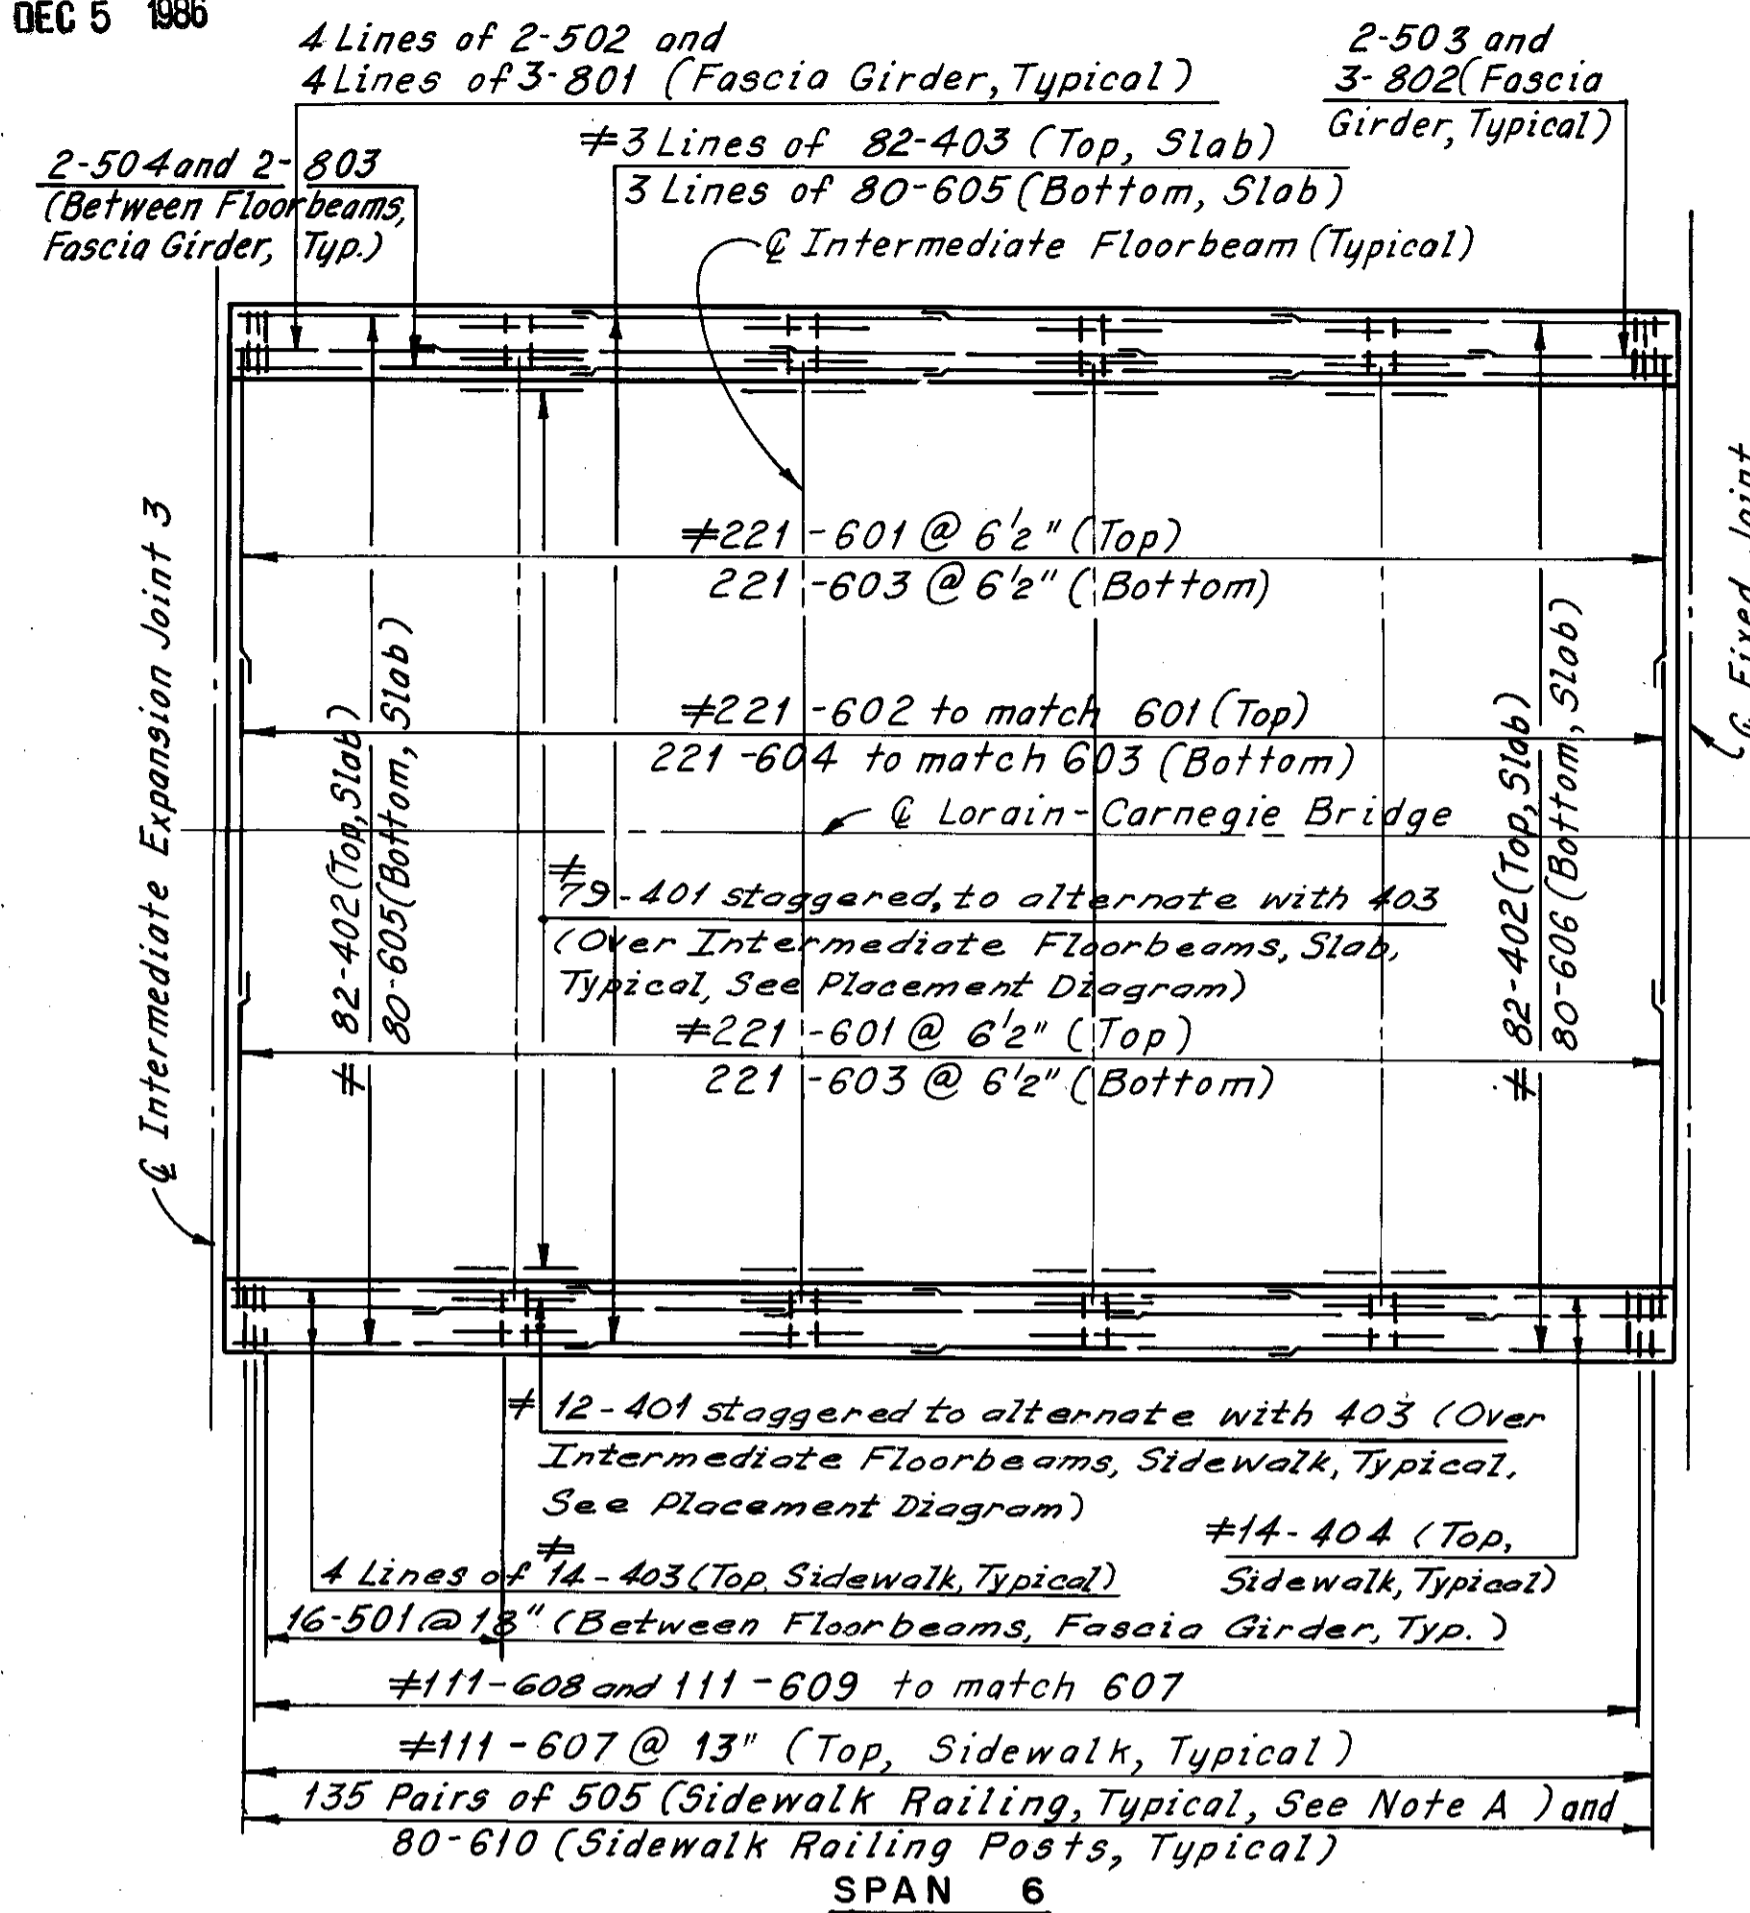 DEC 5 1986
4 Lines of 2-502 and
4 Lines of 3-801 (Fascia Girder, Typical)
2-503 and
3-802 (Fascia
Girder, Typical)
2-504 and 2-803
(Between Floorbeams,
Fascia Girder, Typ.)
≠3 Lines of 82-403 (Top, Slab)
3 Lines of 80-605 (Bottom, Slab)
℄ Intermediate Floorbeam (Typical)
℄ Intermediate Expansion Joint 3
℄ Fixed Joint
≠221-601 @ 6½" (Top)
221-603 @ 6½" (Bottom)
≠ 82-402 (Top, Slab)
80-605 (Bottom, Slab)
≠221-602 to match 601 (Top)
221-604 to match 603 (Bottom)
≠ 82-402 (Top, Slab)
80-606 (Bottom, Slab)
℄ Lorain-Carnegie Bridge
≠
79-401 staggered, to alternate with 403
(Over Intermediate Floorbeams, Slab,
Typical, See Placement Diagram)
≠221-601 @ 6½" (Top)
221-603 @ 6½" (Bottom)
≠ 12-401 staggered to alternate with 403 (Over
Intermediate Floorbeams, Sidewalk, Typical,
See Placement Diagram)
≠14-404 (Top,
Sidewalk, Typical)
≠
4 Lines of 14-403 (Top, Sidewalk, Typical)
16-501 @ 18" (Between Floorbeams, Fascia Girder, Typ.)
≠111-608 and 111-609 to match 607
≠111-607 @ 13" (Top, Sidewalk, Typical)
135 Pairs of 505 (Sidewalk Railing, Typical, See Note A) and
80-610 (Sidewalk Railing Posts, Typical)
SPAN 6